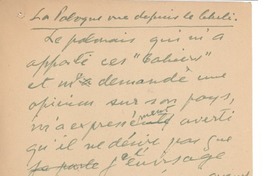 La Pologne vue depuis le Chili.
Le polonais qui m'a
apporté ces "Cahiers"
et m'a demandé une
opinion sur son pays,
m'a expressément averti
qu'il ne désire pas que
je parte j'envisage